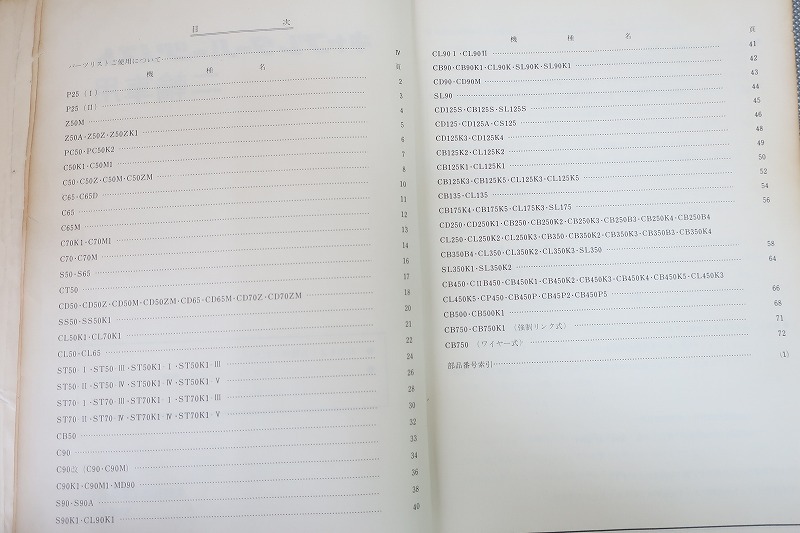 目 次
パーツリストご使用について Ⅳ
機 種 名 頁
P25 (Ⅰ) 2
P25 (Ⅱ) 3
Z50M 4
Z50A・Z50Z・Z50ZK1 5
PC50・PC50K2 6
C50K1・C50M1 7
C50・C50Z・C50M・C50ZM 8
C65・C65D 10
C65 11
C65M 12
C70K1・C70M1 13
C70・C70M 14
S50・S65 16
CT50 17
CD50・CD50Z・CD50M・CD50ZM・CD65・CD65M・CD70Z・CD70ZM 18
SS50・SS50K1 20
CL50K1・CL70K1 21
CL50・CL65 22
ST50-Ⅰ・ST50-Ⅲ・ST50K1-Ⅰ・ST50K1-Ⅲ 24
ST50-Ⅱ・ST50-Ⅳ・ST50K1-Ⅳ・ST50K1-Ⅴ 26
ST70-Ⅰ・ST70-Ⅲ・ST70K1-Ⅰ・ST70K1-Ⅲ 28
ST70-Ⅱ・ST70-Ⅳ・ST70K1-Ⅳ・ST70K1-Ⅴ 30
CB50 32
C90 33
C90改 (C90・C90M) 34
C90K1・C90M1・MD90 36
S90・S90A 38
S90K1・CL90K1 40
機 種 名 頁
CL90Ⅰ・CL90Ⅱ 41
CB90・CB90K1・CL90K・SL90K・SL90K1 42
CD90・CD90M 43
SL90 44
CD125S・CB125S・SL125S 45
CD125・CD125A・CS125 46
CD125K3・CD125K4 48
CB125K2・CL125K2 49
CB125K1・CL125K1 50
CB125K3・CB125K5・CL125K3・CL125K5 52
CB135・CL135 54
CB175K4・CB175K5・CL175K3・SL175 56
CD250・CD250K1・CB250・CB250K2・CB250K3・CB250B3・CB250K4・CB250B4
CL250・CL250K2・CL250K3・CB350・CB350K2・CB350K3・CB350B3・CB350K4
CB350B4・CL350・CL350K2・CL350K3・SL350 58
SL350K1・SL350K2 64
CB450・CⅡB450・CB450K1・CB450K2・CB450K3・CB450K4・CB450K5・CL450K3
CL450K5・CP450・CB450P・CB45P2・CB450P5 66
CB500・CB500K1 68
CB750・CB750K1 (強制リンク式) 71
CB750 (ワイヤー式) 72
部品番号索引 (1)